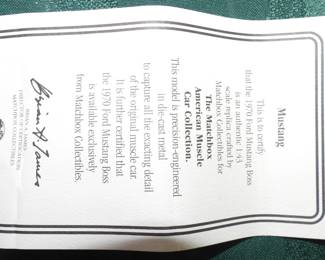 Mustang
This is to certify
that the 1970 Ford Mustang Boss
is an authentic 1:43
scale replica crafted by
Matchbox Collectibles for
The Matchbox
American Muscle
Car Collection.
This model is precision-engineered
in die-cast metal
to capture all the exacting detail
of the original muscle car.
It is further certified that
the 1970 Ford Mustang Boss
is available exclusively
from Matchbox Collectibles.
James
DIRECTOR OF AUTHENTICATION
MATCHBOX COLLECTIBLES